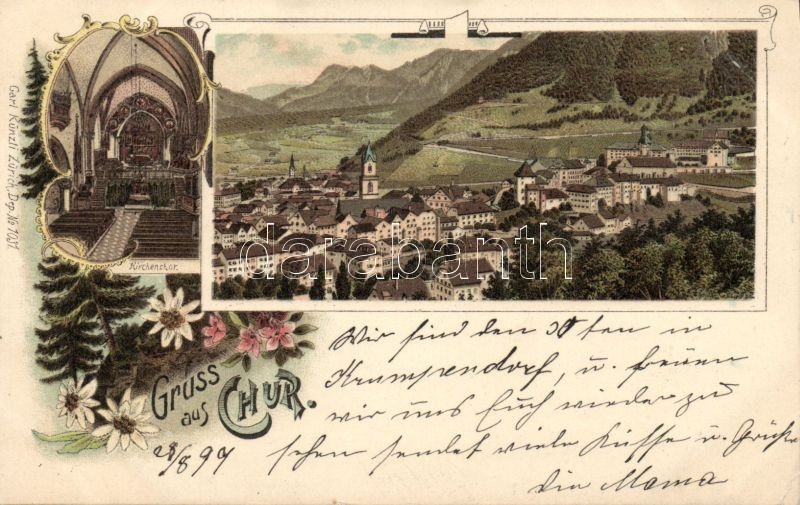 Carl Künzli Zürich, Dep. No 1031.
Kirchenchor.
darabanth
Gruss
aus CHUR.
28/8 97
Wir sind den 30ten in
Krumpendorf, u. freuen
wir uns Euch wieder zu
sehen sendet viele Küsse u. Grüße
die Mama